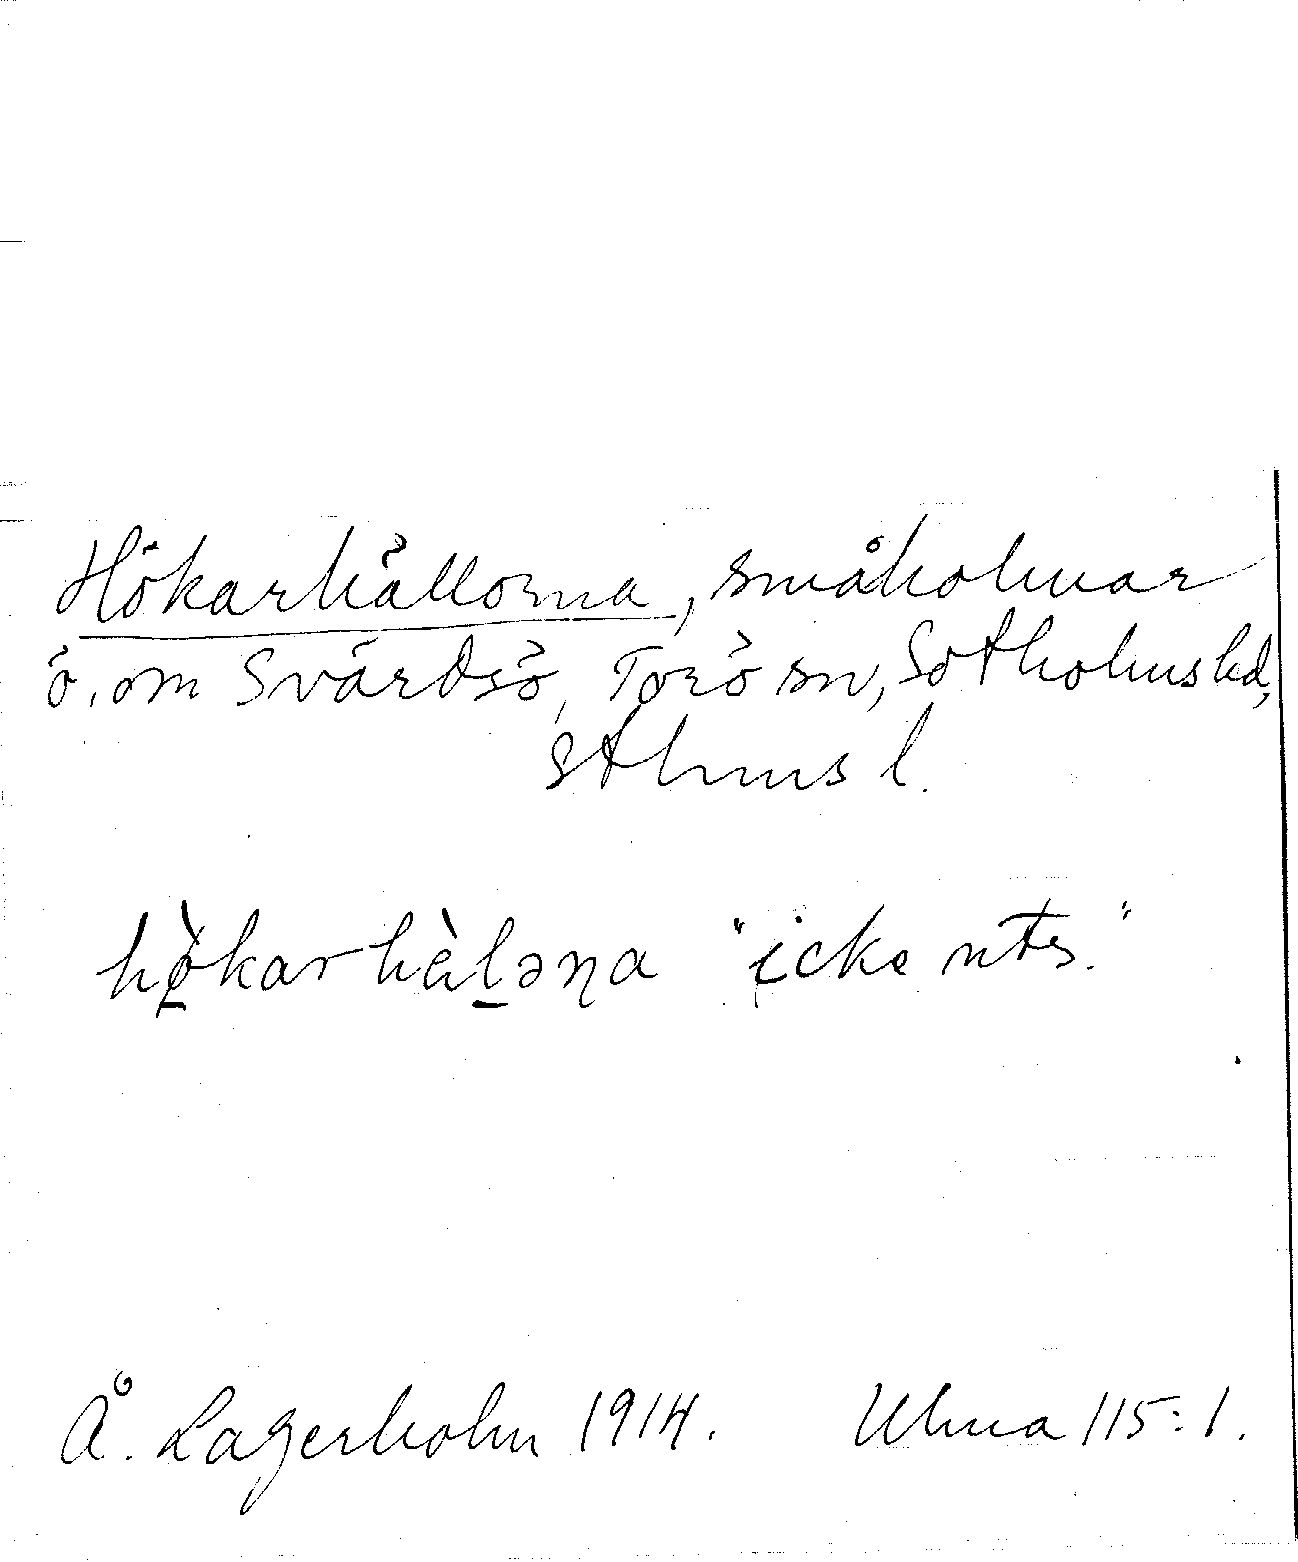 Hökarhällorna, småholmar
ö. om Svärdsö, Torö sn, Sotholms hd,
Sthms l.
hø̀karhàl̠əɳa "icke uts."
Å. Lagerholm 1914. Ulma 115:1.